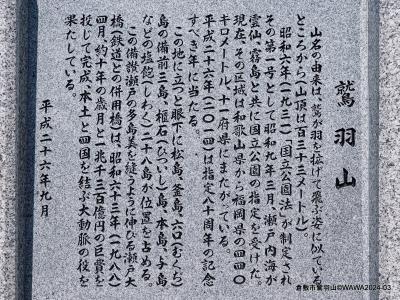 鷲羽山
山名の由来は、鷲が羽を拡げて飛ぶ姿に似ている
ところから(山頂は百三十三メートル)。
昭和六年(一九三一)「国立公園法」が制定され
その第一号として昭和九年三月、瀬戸内海が
雲仙、霧島と共に国立公園の指定を受けた。
現在、その区域は和歌山県から福岡県の四四〇
キロメートル、十一府県にまたがっている。
平成二十六年(二〇一四)は指定八十周年の記念
すべき年に当たる。
この地に立つと眼下に松島、釜島、六口(むくち)
島の備前三島、櫃石(ひついし)島、本島、与島
などの塩飽(しわく)二十八島が位置を占める。
この備讃瀬戸の多島美を縫うように伸びる瀬戸大
橋(鉄道との併用橋)は、昭和六十三年(一九八八)
四月、約十年の歳月と一兆千三百億円の巨費を
投じて完成。本土と四国を結ぶ大動脈の役を
果たしている。
平成二十六年九月
倉敷市鷲羽山©WAWA2024-03